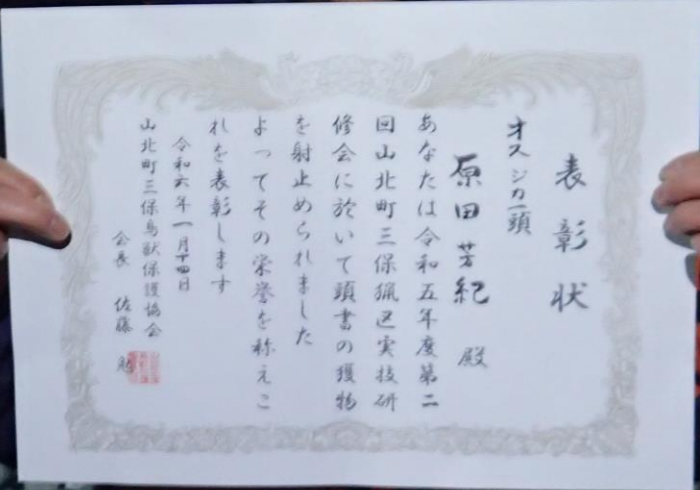 表彰状
オスジカ一頭
原田芳紀 殿
あなたは令和五年度第二
回山北町三保猟区実技研
修会に於いて頭書の獲物
を射止められました
よってその栄誉を称えこ
れを表彰します
令和六年一月十四日
山北町三保鳥獣保護協会
会長 佐藤 勉